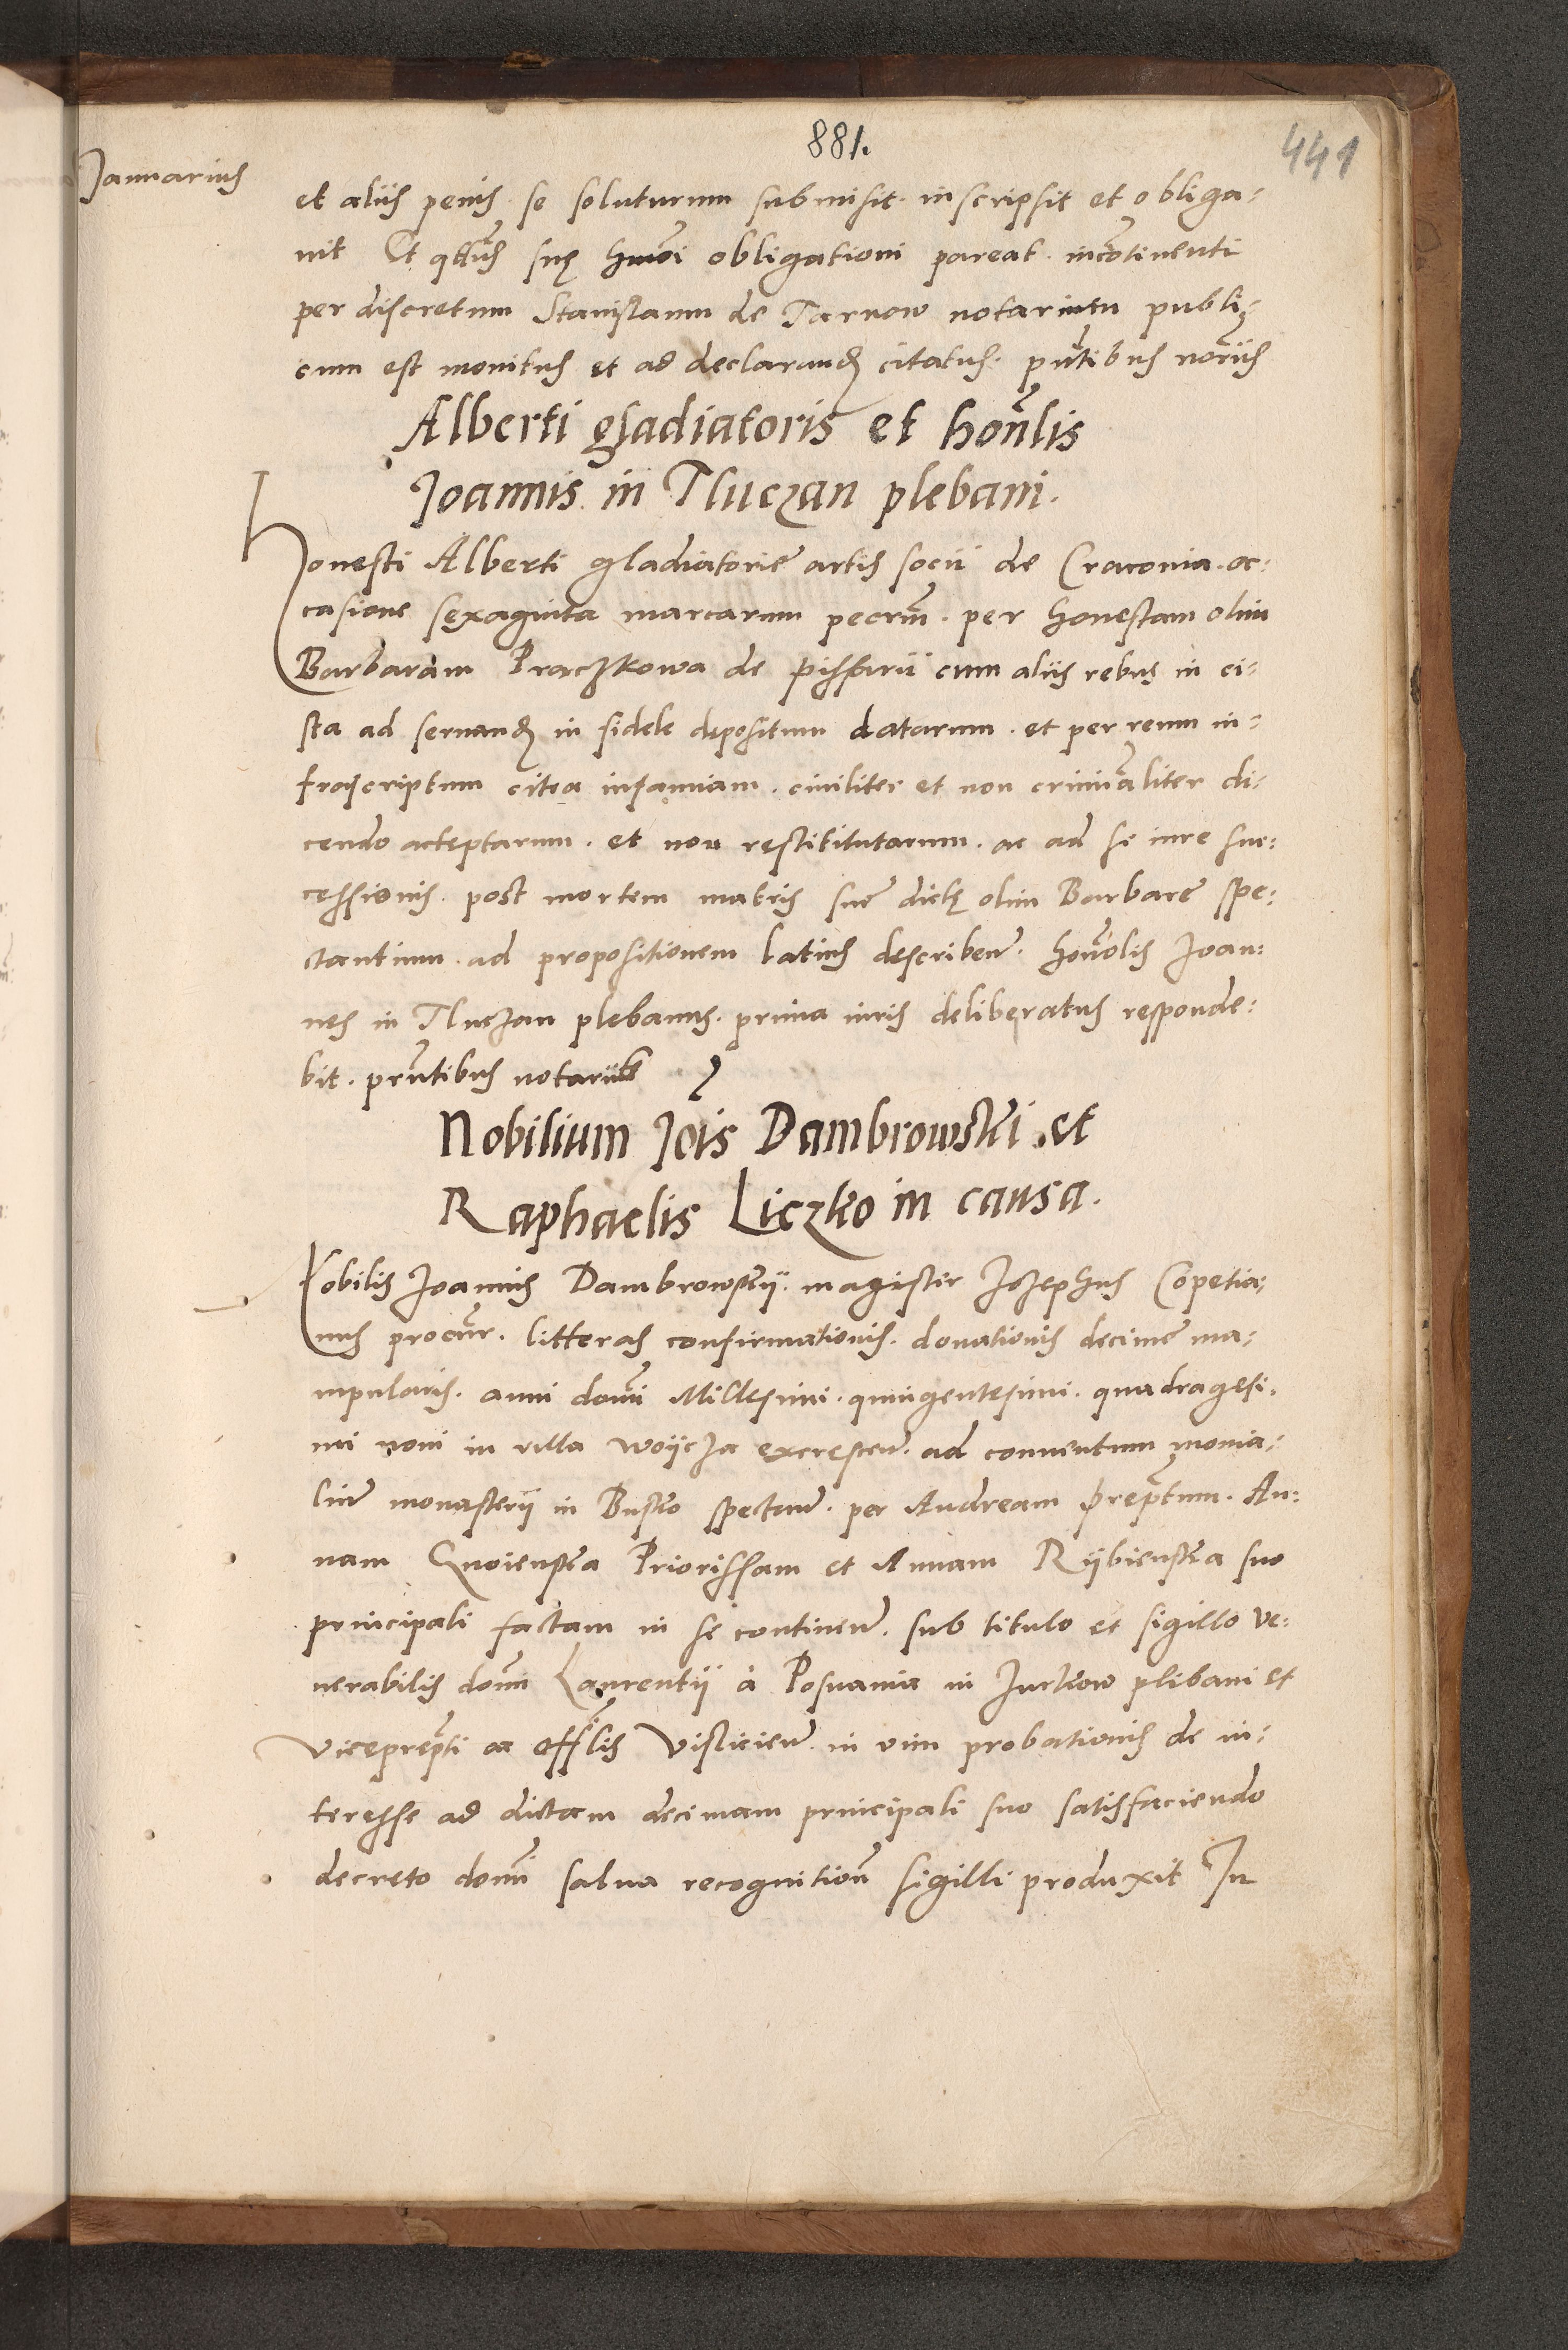 881.
441
Januarius
et aliis penis se soluturum submisit inscripsit et obliga-
uit Et q̃ttus suę hmõi obligationi pareat incõtinenti
per discretum Stanislaum de Tarnow notarium publi-
cum est monitus et ad declarand citatus. pñtibus noriis
Alberti gladiatoris et honlis
Joannis in Tluczan plebani.
Honesti Alberti gladiatorie artis socii de Craconia. oc-
casione sexaginta marcarum pecrm. per honestam olim
Barbaram Praczkowa de cum aliis rebus in ci-
sta ad seruand in fidele depositum datarum. et per reum in-
frascriptum citra infamiam. ciuiliter et non criminaliter di-
cendo acceptarum. et non restititutarum. ac ad se iure suc-
cessionis. post mortem matris sue dictę olim Barbare spe-
ctantium. ad propositionem latius describen. honolis Joan-
nes in Tluczan plebanus. prima iuris deliberatus responde-
bit. prñtibus notariis
Nobilium Jois Dambrowski et
Raphaelis Liczko in causa.
Nobilis Joannis Dambrowskij. magister Jozephus Copetia-
nus procur. litteras confirmationis. donationis decime ma-
nipularis. anni domi Millesimi. quingentesimi. quadragesi-
mi noni in villa Woijcza excrescen. ad conuentum monia-
lium monasterij in Busko spectan. per Andream preptum. An-
nam Gnoienska Priorissam et Annam Rijbienska suo
principali factam in se continen. sub titulo et sigillo ve-
nerabilis domi Laurentij à Posnania in Jurkow plebani et
viceprepti ac offlis Visliciens. in vim probationis de in-
teresse ad dictam decimam principali suo satisfaciendo
decreto domi salua recognitione sigilli produxit In